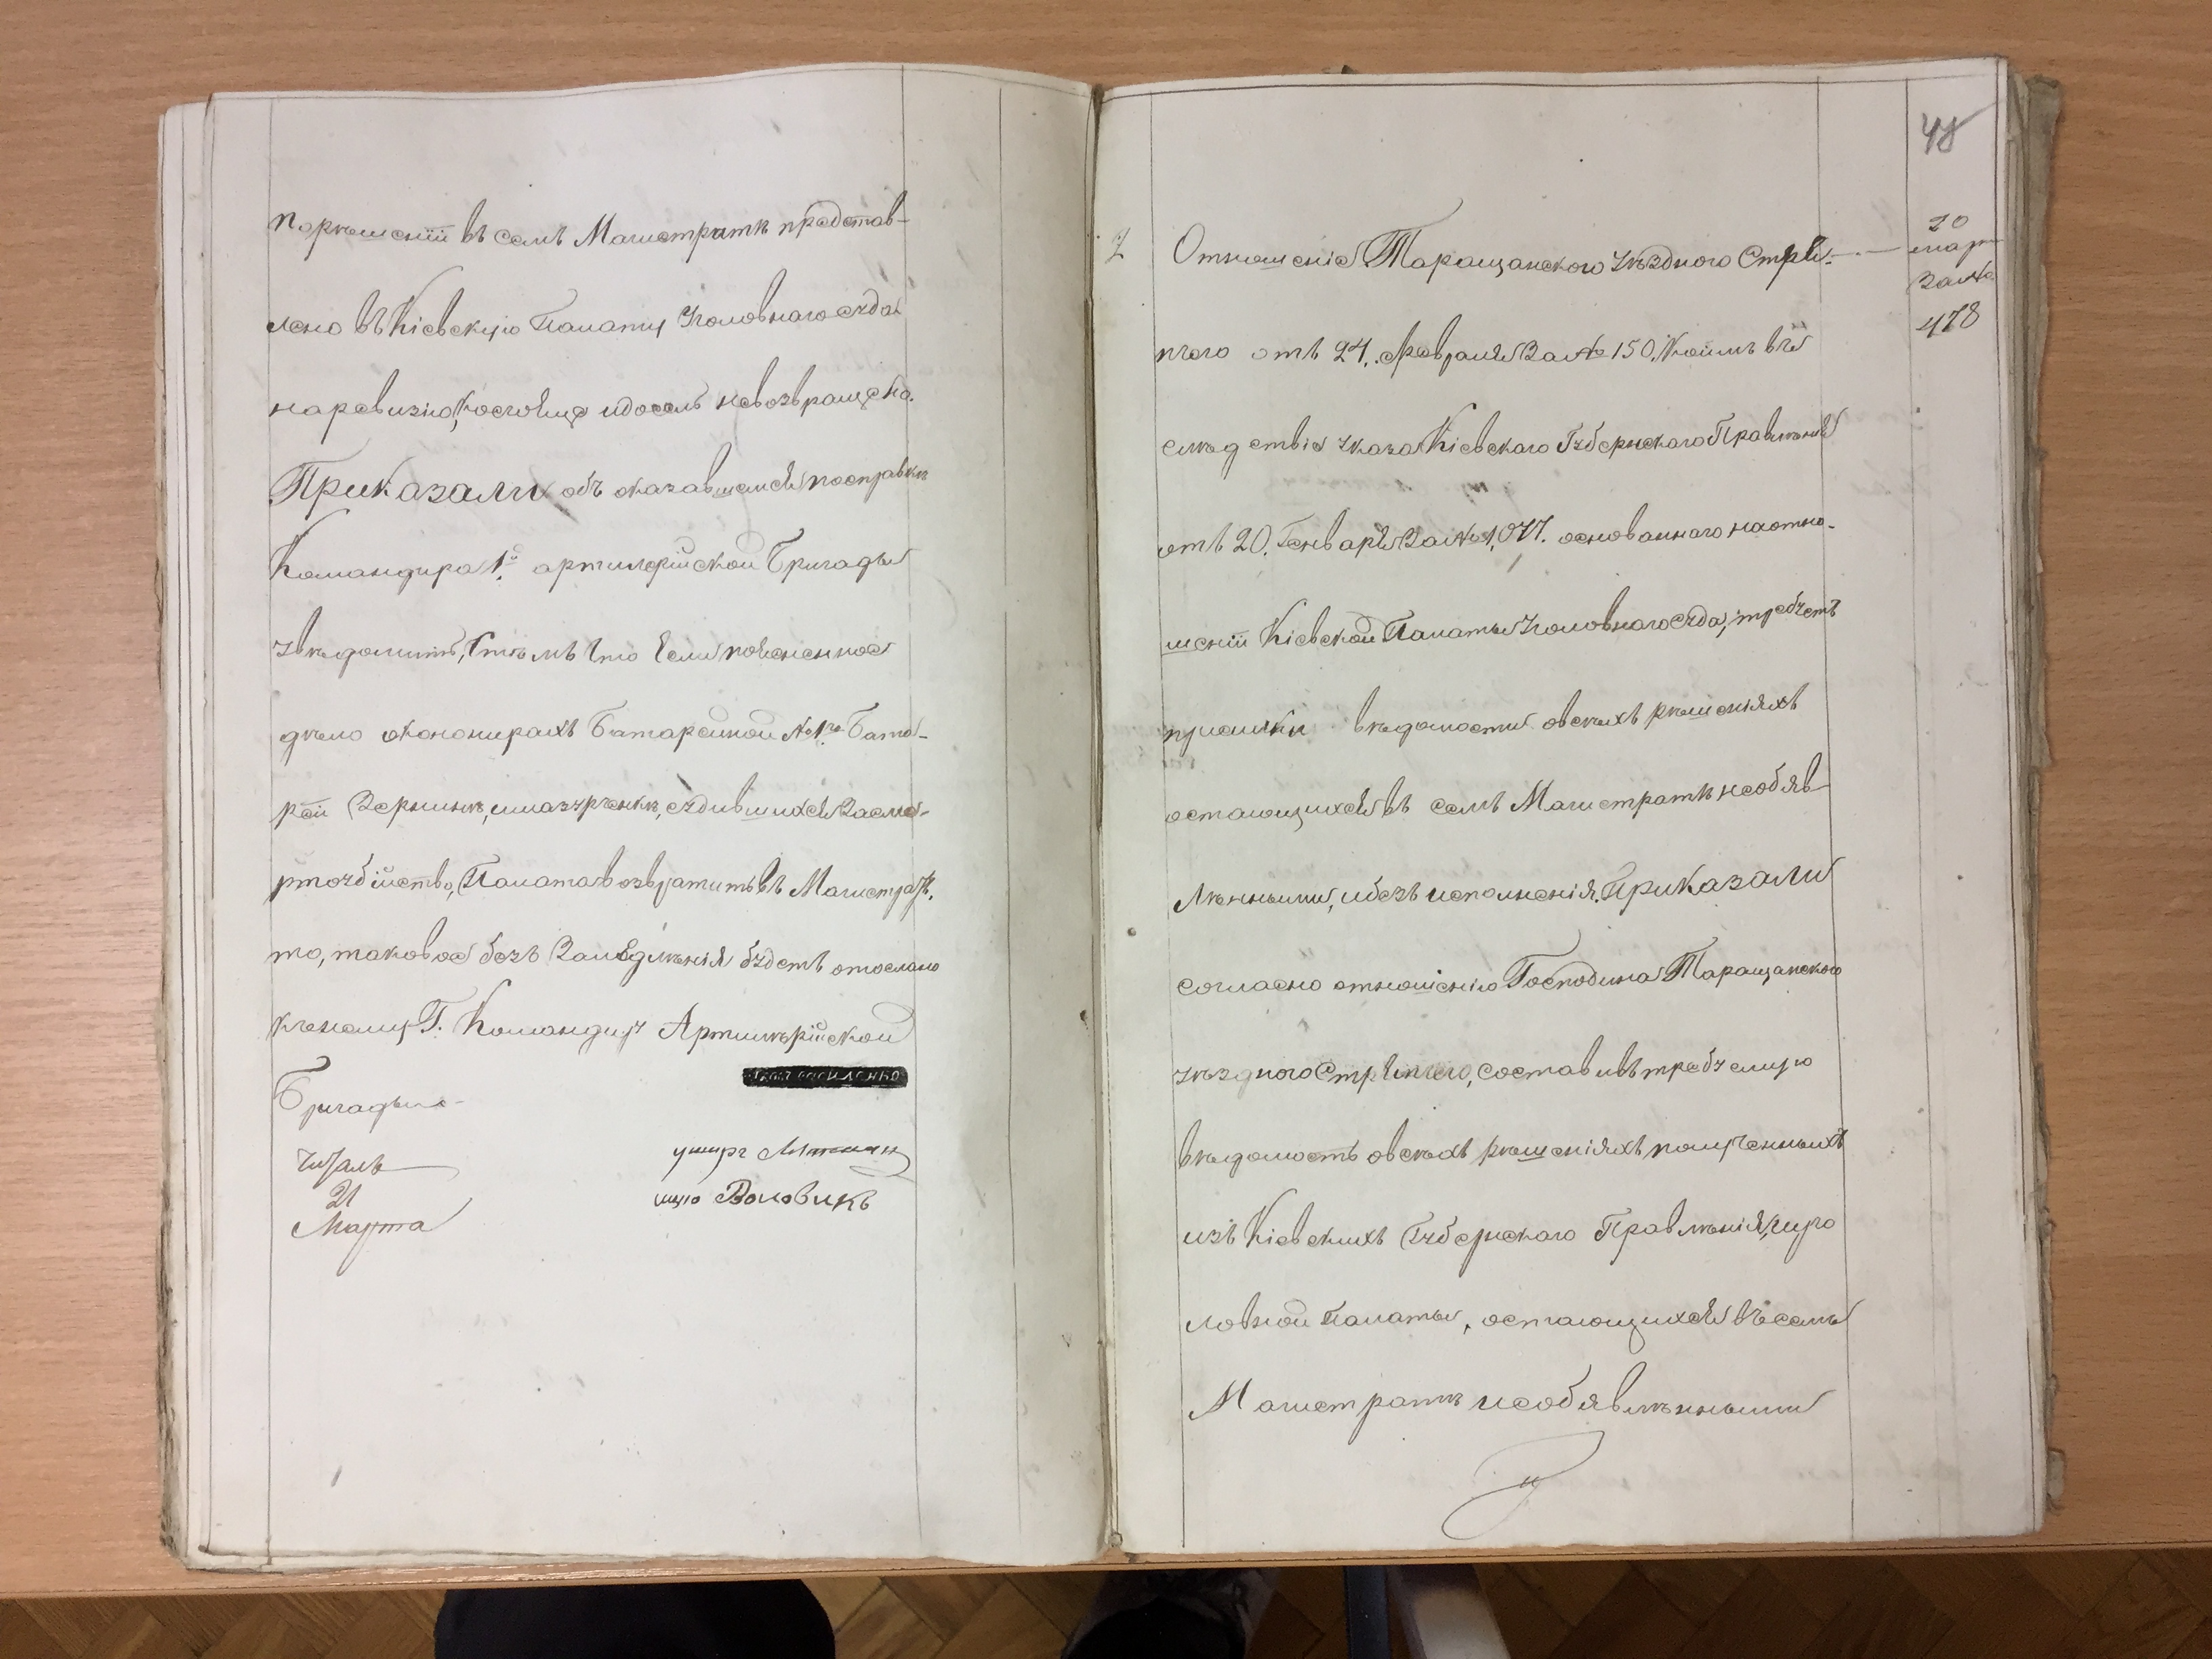 порѣшеніи въ семъ Магистратѣ представ-
лено въ Кіевскую Палату Уголовнаго суда
наревизію, коего еще идосель невозвращено.
Приказали объ оказавшемся посправкѣ
Командира 1й артилерійской Бригады
увѣдомить, стѣмъ что если поясненное
дѣло оканонирахъ Батарейной №1го Бата-
реи
ртоубійство, Палата возвратитъ въ Магистратъ,
то, таковое безъ Замедлѣнія будетъ отослано
кнему Г. Командиру Артилѣрійской
Бригады
Читалъ
21
Марта
Воловикъ
48
2 Отношеніе Таращанского Уѣздного Стряп-
20
мар
за №
478
чего отъ 24. Февраля За № 150. Коимъ въ
слѣдствіе указа Кіевского Губернского Правлѣнія
отъ 20. Генваря За № 1,077. основанного наотно-
шеніи Кіевской Палаты Уголовного суда, требуетъ
присилки вѣдомости овсѣхъ рѣшеніяхъ
остающихся въ семъ Магистратѣ необяв-
лѣнными, ибезъ исполненія. Приказали
согласно отношенію Господина Таращанского
уѣздного Стряпчего, составивъ требуемую
вѣдомость овсѣхъ рѣшеніяхъ полученныхъ
изъ Кіевскихъ Губернского Правлѣнія, Иуго
ловной Палаты, остающихся въсемъ
Магистратѣ необявлѣнными